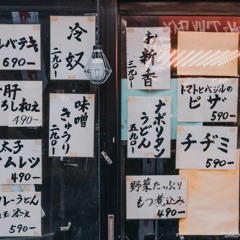 レバテキ
690-
冷奴
二九〇-
お新香
三九〇-
肝
ろし和え
490-
味噌
きゅうり
二九〇-
ナポリタン
うどん
五九〇-
トマトとバジルの
ピザ
590-
チヂミ
590-
太子
オムレツ
490-
カレーうどん
野菜たっぷり
もつ煮込み
490-